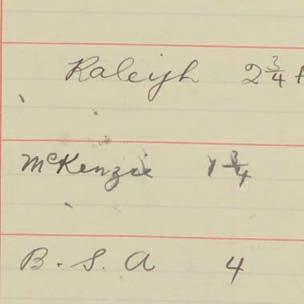 Raleigh 2 3/4 H
McKenzie 1 3/4
B. S. A 4